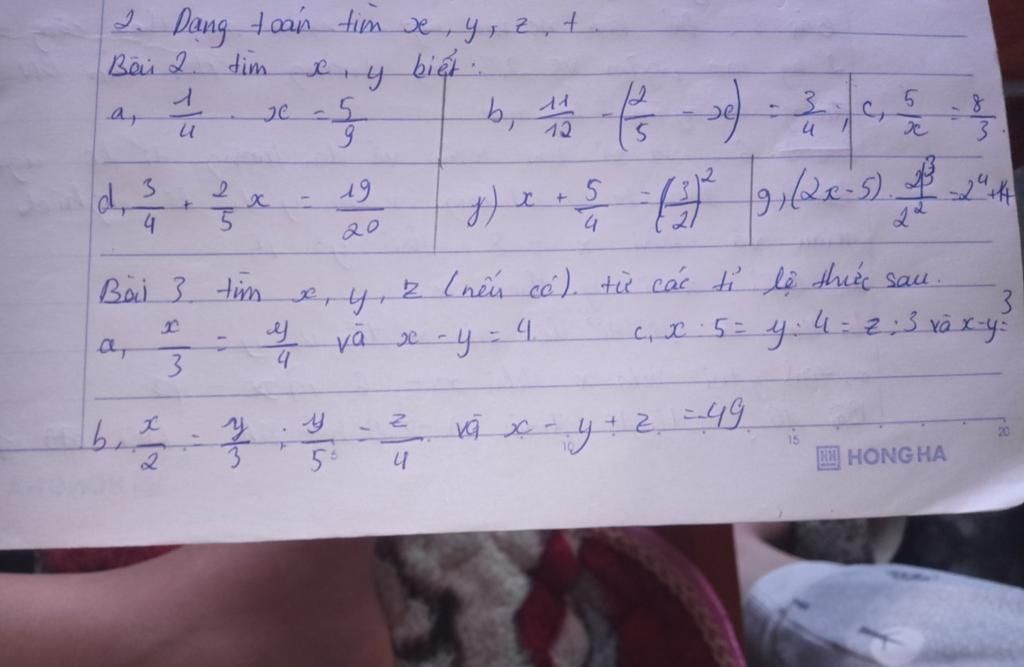 2. Dạng toán tìm x, y, z, t.
Bài 2. tìm x, y biết:
a, 1/4 . x = 5/9 b, 11/12 - (2/5 - x) = 3/4; c, 5/x = 8/3.
d, 3/4 + 2/5 x = 19/20 y) x + 5/4 = (3/2)^2 g, (2x-5) . 2^3/2^2 = 2^4 +
Bài 3. tìm x, y, z (nếu có). từ các tỉ lệ thức sau.
a, x/3 = y/4 và x - y = 4. c, x : 5 = y : 4 = z : 3 và x-y= 3
b, x/2 = y/3 ; y/5 = z/4 và x - y + z = 49
5 10 15 20
HH HONG HA